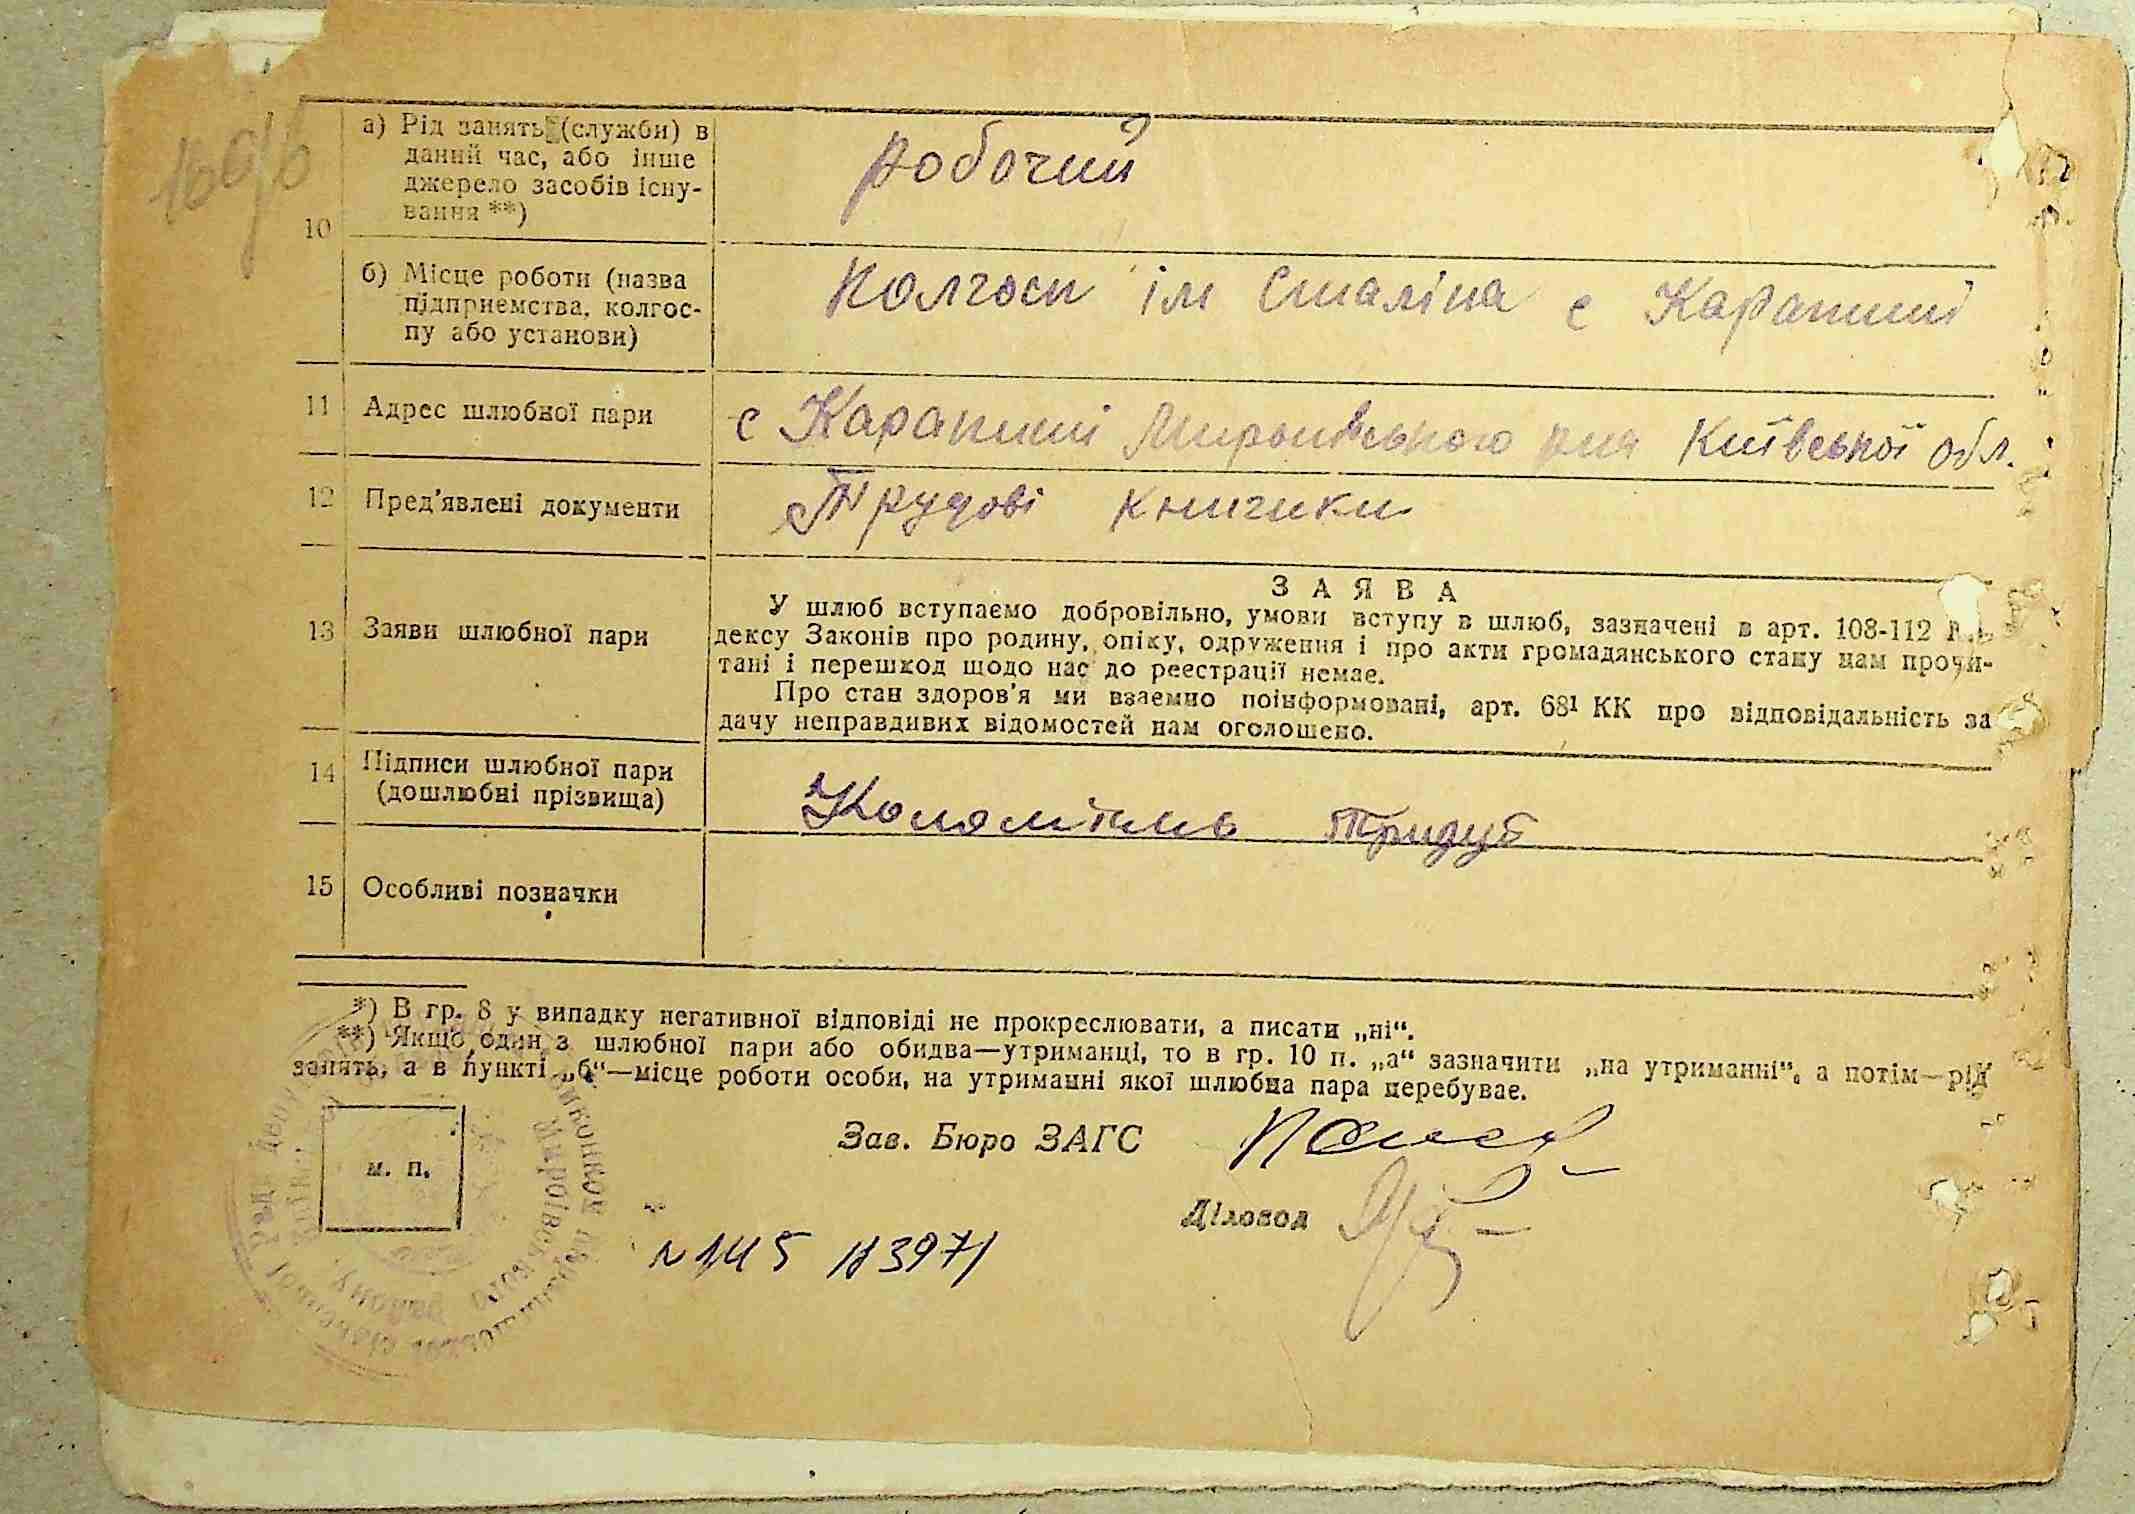 160/б
10
а) Рід занять (служби) в
даний час, або інше
джерело засобів існу-
вання **)
робочий
б) Місце роботи (назва
підприємства, колгос-
пу або установи)
Колгосп ім Сталіна с Карапиші
11 Адрес шлюбної пари
с Карапиші Миронівського р-на Київської обл.
12 Пред'явлені документи
Трудові книжки
13 Заяви шлюбної пари
ЗАЯВА
У шлюб вступаємо добровільно, умови вступу в шлюб, зазначені в арт. 108-112
дексу Законів про родину, опіку, одруження і про акти громадянського стану нам прочи-
тані і перешкод щодо нас до реєстрації немає.
Про стан здоров'я ми взаємно поінформовані, арт. 68¹ КК про відповідальність за
дачу неправдивих відомостей нам оголошено.
14 Підписи шлюбної пари
(дошлюбні прізвища)
Тридуб
15 Особливі позначки
*) В гр. 8 у випадку негативної відповіді не прокреслювати, а писати „ні“.
**) Якщо один з шлюбної пари або обидва—утриманці, то в гр. 10 п. „а“ зазначити „на утриманні“, а потім—рід
занять, а в пункті „б“—місце роботи особи, на утриманні якої шлюбна пара перебуває.
Зав. Бюро ЗАГС
м. п.
Діловод
N 145 113971
Виконком Караписької сільської Ради депут
Миронівського району